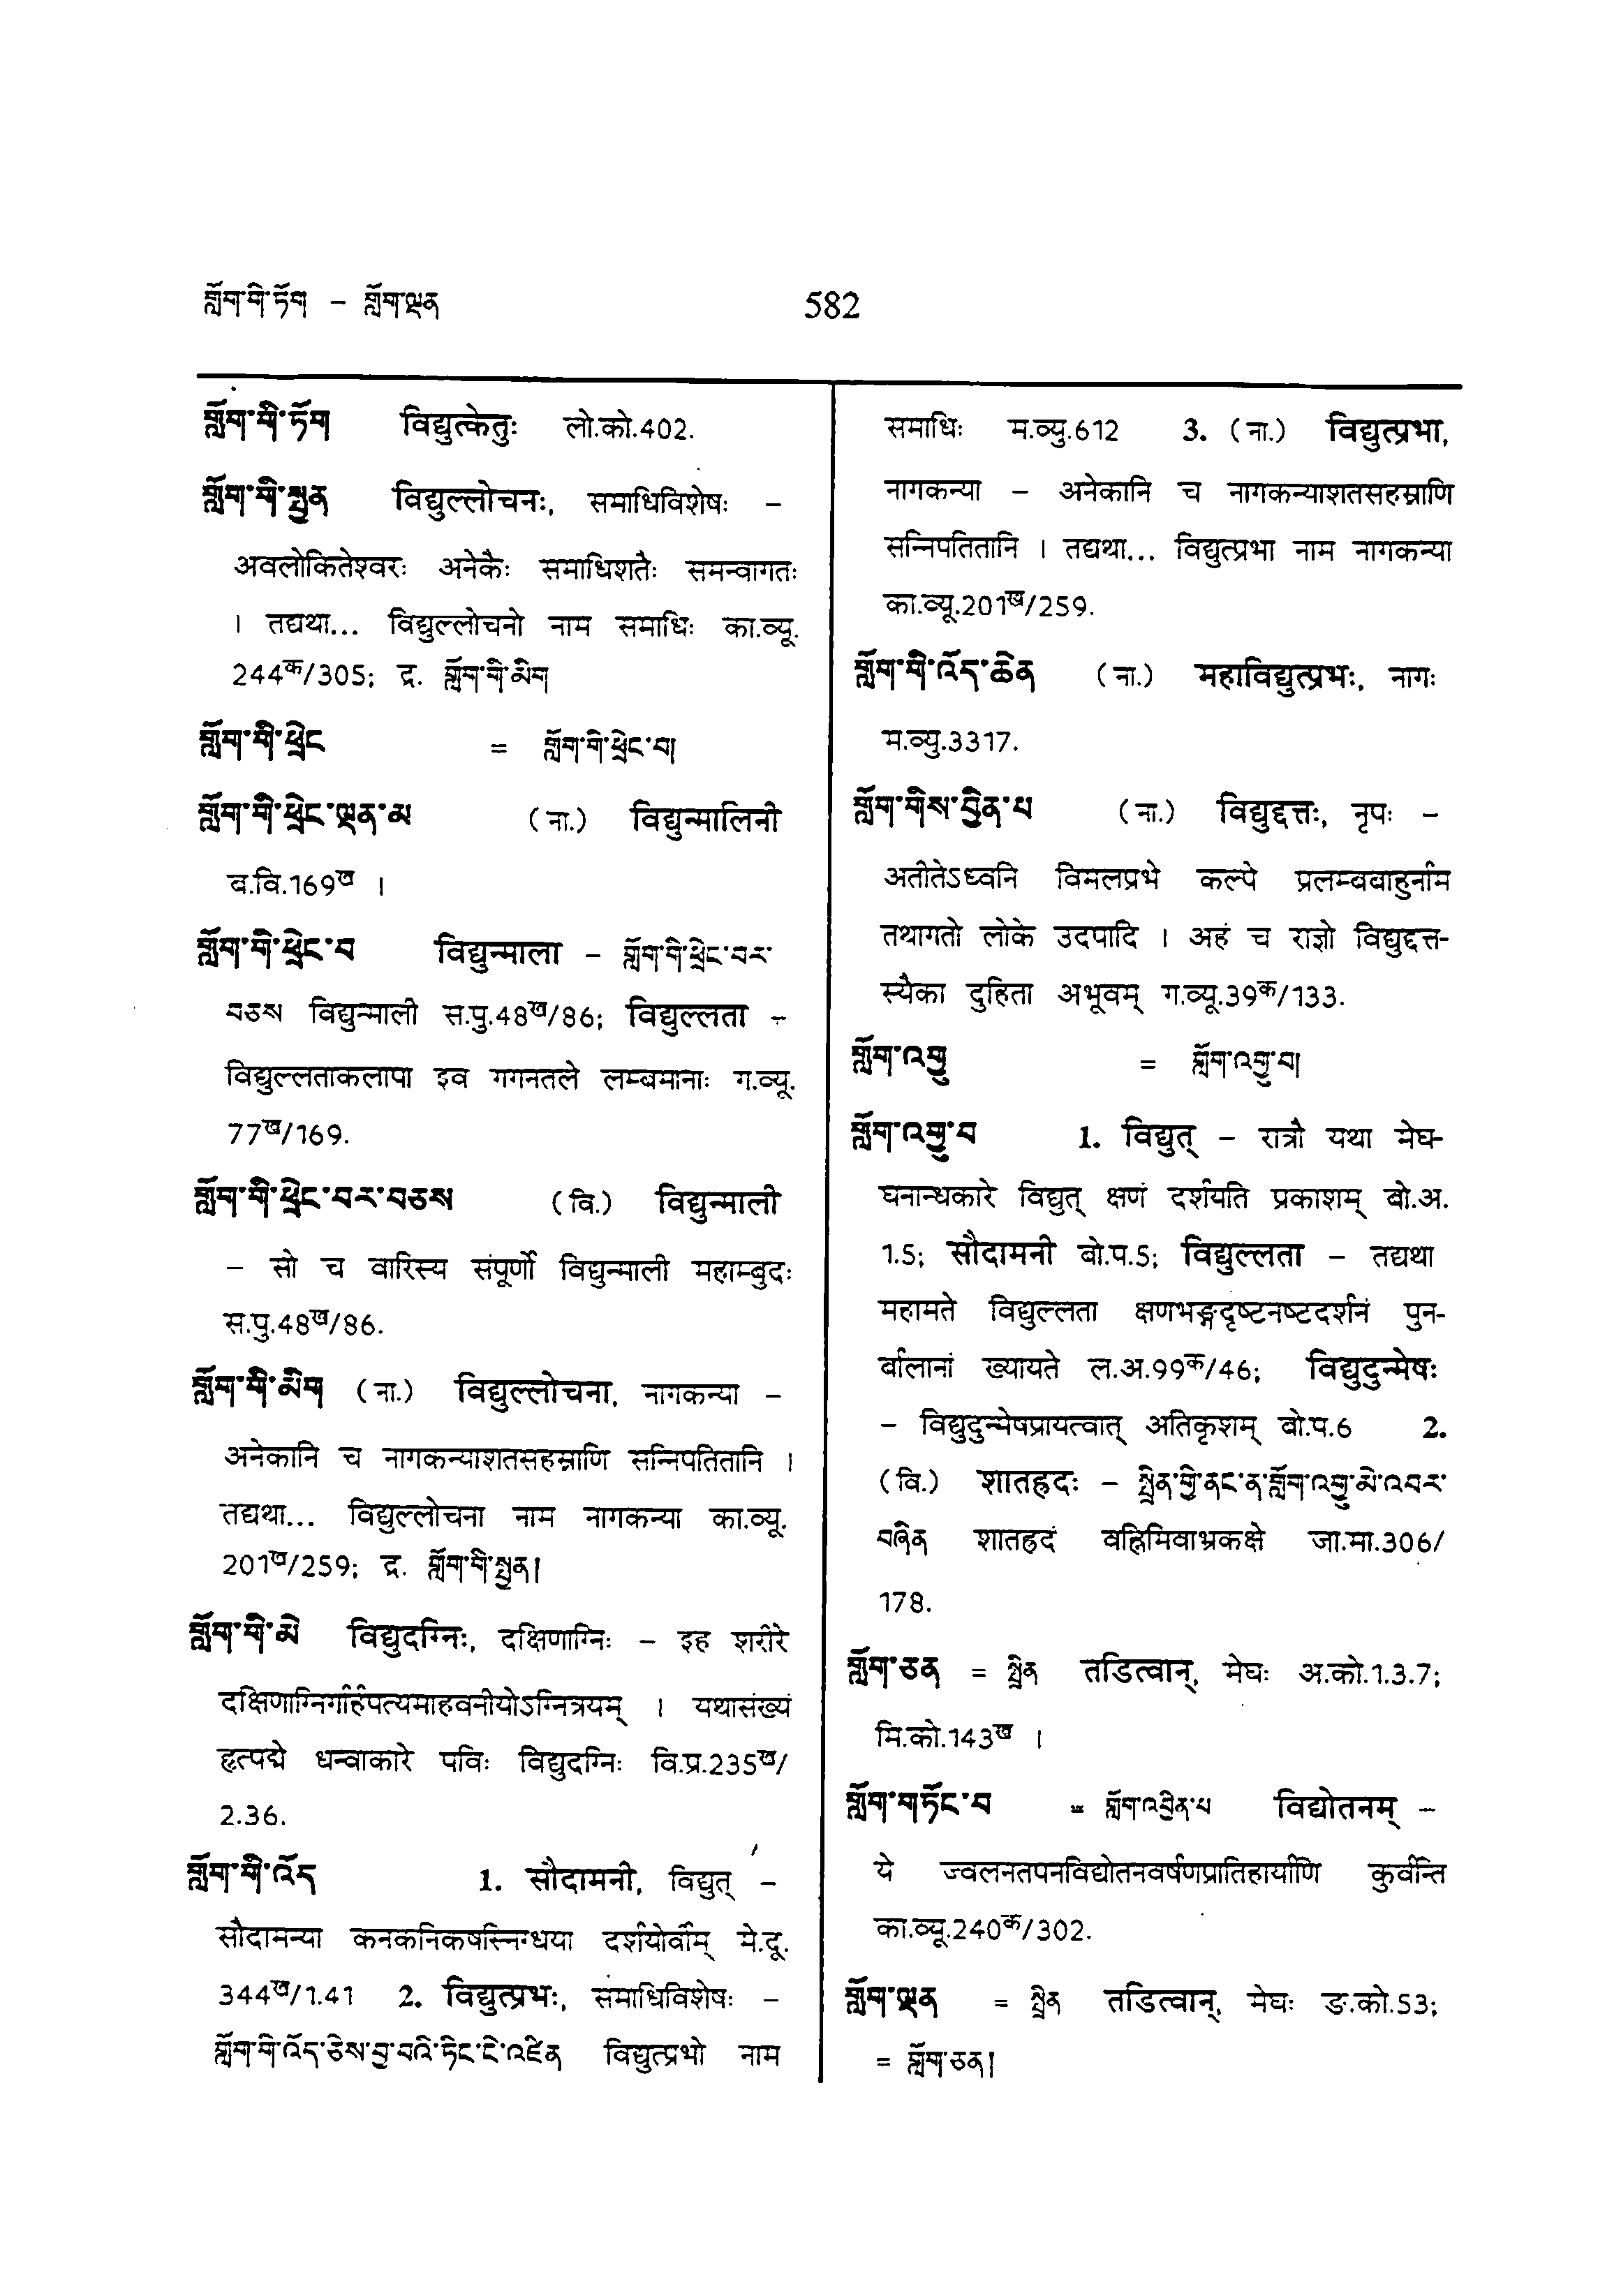 གློག་གི་ཏོག – གློག་ལྡན
582
གློག་གི་ཏོག विद्युत्केतुः लो.को.402.
གློག་གི་སྤྱན विद्युल्लोचनः, समाधिविशेषः –
अवलोकितेश्वरः अनेकैः समाधिशतैः समन्वागतः
। तद्यथा... विद्युल्लोचनो नाम समाधिः का.व्यू.
244क/305; द्र. གློག་གི་མིག
གློག་གི་ཕྲེང = གློག་གི་ཕྲེང་བ།
གློག་གི་ཕྲེང་ལྡན་མ (ना.) विद्युन्मालिनी
ब.वि.169ख ।
གློག་གི་ཕྲེང་བ विद्युन्माला – གློག་གི་ཕྲེང་བར་
བཅས विद्युन्माली स.पु.48ख/86; विद्युल्लता –
विद्युल्लताकलापा इव गगनतले लम्बमानाः ग.व्यू.
77ख/169.
གློག་གི་ཕྲེང་བར་བཅས (वि.) विद्युन्माली
– सो च वारिस्य संपूर्णो विद्युन्माली महाम्बुदः
स.पु.48ख/86.
གློག་གི་མིག (ना.) विद्युल्लोचना, नागकन्या –
अनेकानि च नागकन्याशतसहस्राणि सन्निपतितानि ।
तद्यथा... विद्युल्लोचना नाम नागकन्या का.व्यू.
201ख/259; द्र. གློག་གི་སྤྱན།
གློག་གི་མེ विद्युदग्निः, दक्षिणाग्निः – इह शरीरे
दक्षिणाग्निर्गार्हपत्यमाहवनीयोऽग्नित्रयम् । यथासंख्यं
हृत्पद्मे धन्वाकारे पविः विद्युदग्निः वि.प्र.235ख/
2.36.
གློག་གི་འོད 1. सौदामनी, विद्युत् –
सौदामन्या कनकनिकषस्निग्धया दर्शयोर्वीम् मे.दू.
344ख/1.41 2. विद्युत्प्रभः, समाधिविशेषः –
གློག་གི་འོད་ཅེས་བྱ་བའི་ཏིང་ངེ་འཛིན विद्युत्प्रभो नाम
समाधिः म.व्यु.612 3. (ना.) विद्युत्प्रभा,
नागकन्या – अनेकानि च नागकन्याशतसहस्राणि
सन्निपतितानि । तद्यथा... विद्युत्प्रभा नाम नागकन्या
का.व्यू.201ख/259.
གློག་གི་འོད་ཆེན (ना.) महाविद्युत्प्रभः, नागः
म.व्यु.3317.
གློག་གིས་བྱིན་པ (ना.) विद्युद्दत्तः, नृपः –
अतीतेऽध्वनि विमलप्रभे कल्पे प्रलम्बबाहुर्नाम
तथागतो लोके उदपादि । अहं च राज्ञो विद्युद्दत्त-
स्यैका दुहिता अभूवम् ग.व्यू.39क/133.
གློག་འགྱུ = གློག་འགྱུ་བ།
གློག་འགྱུ་བ 1. विद्युत् – रात्रौ यथा मेघ-
घनान्धकारे विद्युत् क्षणं दर्शयति प्रकाशम् बो.अ.
1.5; सौदामनी बो.प.5; विद्युल्लता – तद्यथा
महामते विद्युल्लता क्षणभङ्गदृष्टनष्टदर्शनं पुन-
र्बालानां ख्यायते ल.अ.99क/46; विद्युदुन्मेषः
– विद्युदुन्मेषप्रायत्वात् अतिकृशम् बो.प.6 2.
(वि.) शातह्रदः – སྤྲིན་གྱི་ནང་ན་གློག་འགྱུ་མེ་འབར་
བཞིན शातह्रदं वह्निमिवाभ्रकक्षे जा.मा.306/
178.
གློག་ཅན = སྤྲིན तडित्वान्, मेघः अ.को.1.3.7;
मि.को.143ख ।
གློག་གཏོང་བ = གློག་འབྱིན་པ विद्योतनम् –
ये ज्वलनतपनविद्योतनवर्षणप्रातिहार्याणि कुर्वन्ति
का.व्यू.240क/302.
གློག་ལྡན = སྤྲིན तडित्वान्, मेघः ङ.को.53;
= གློག་ཅན།